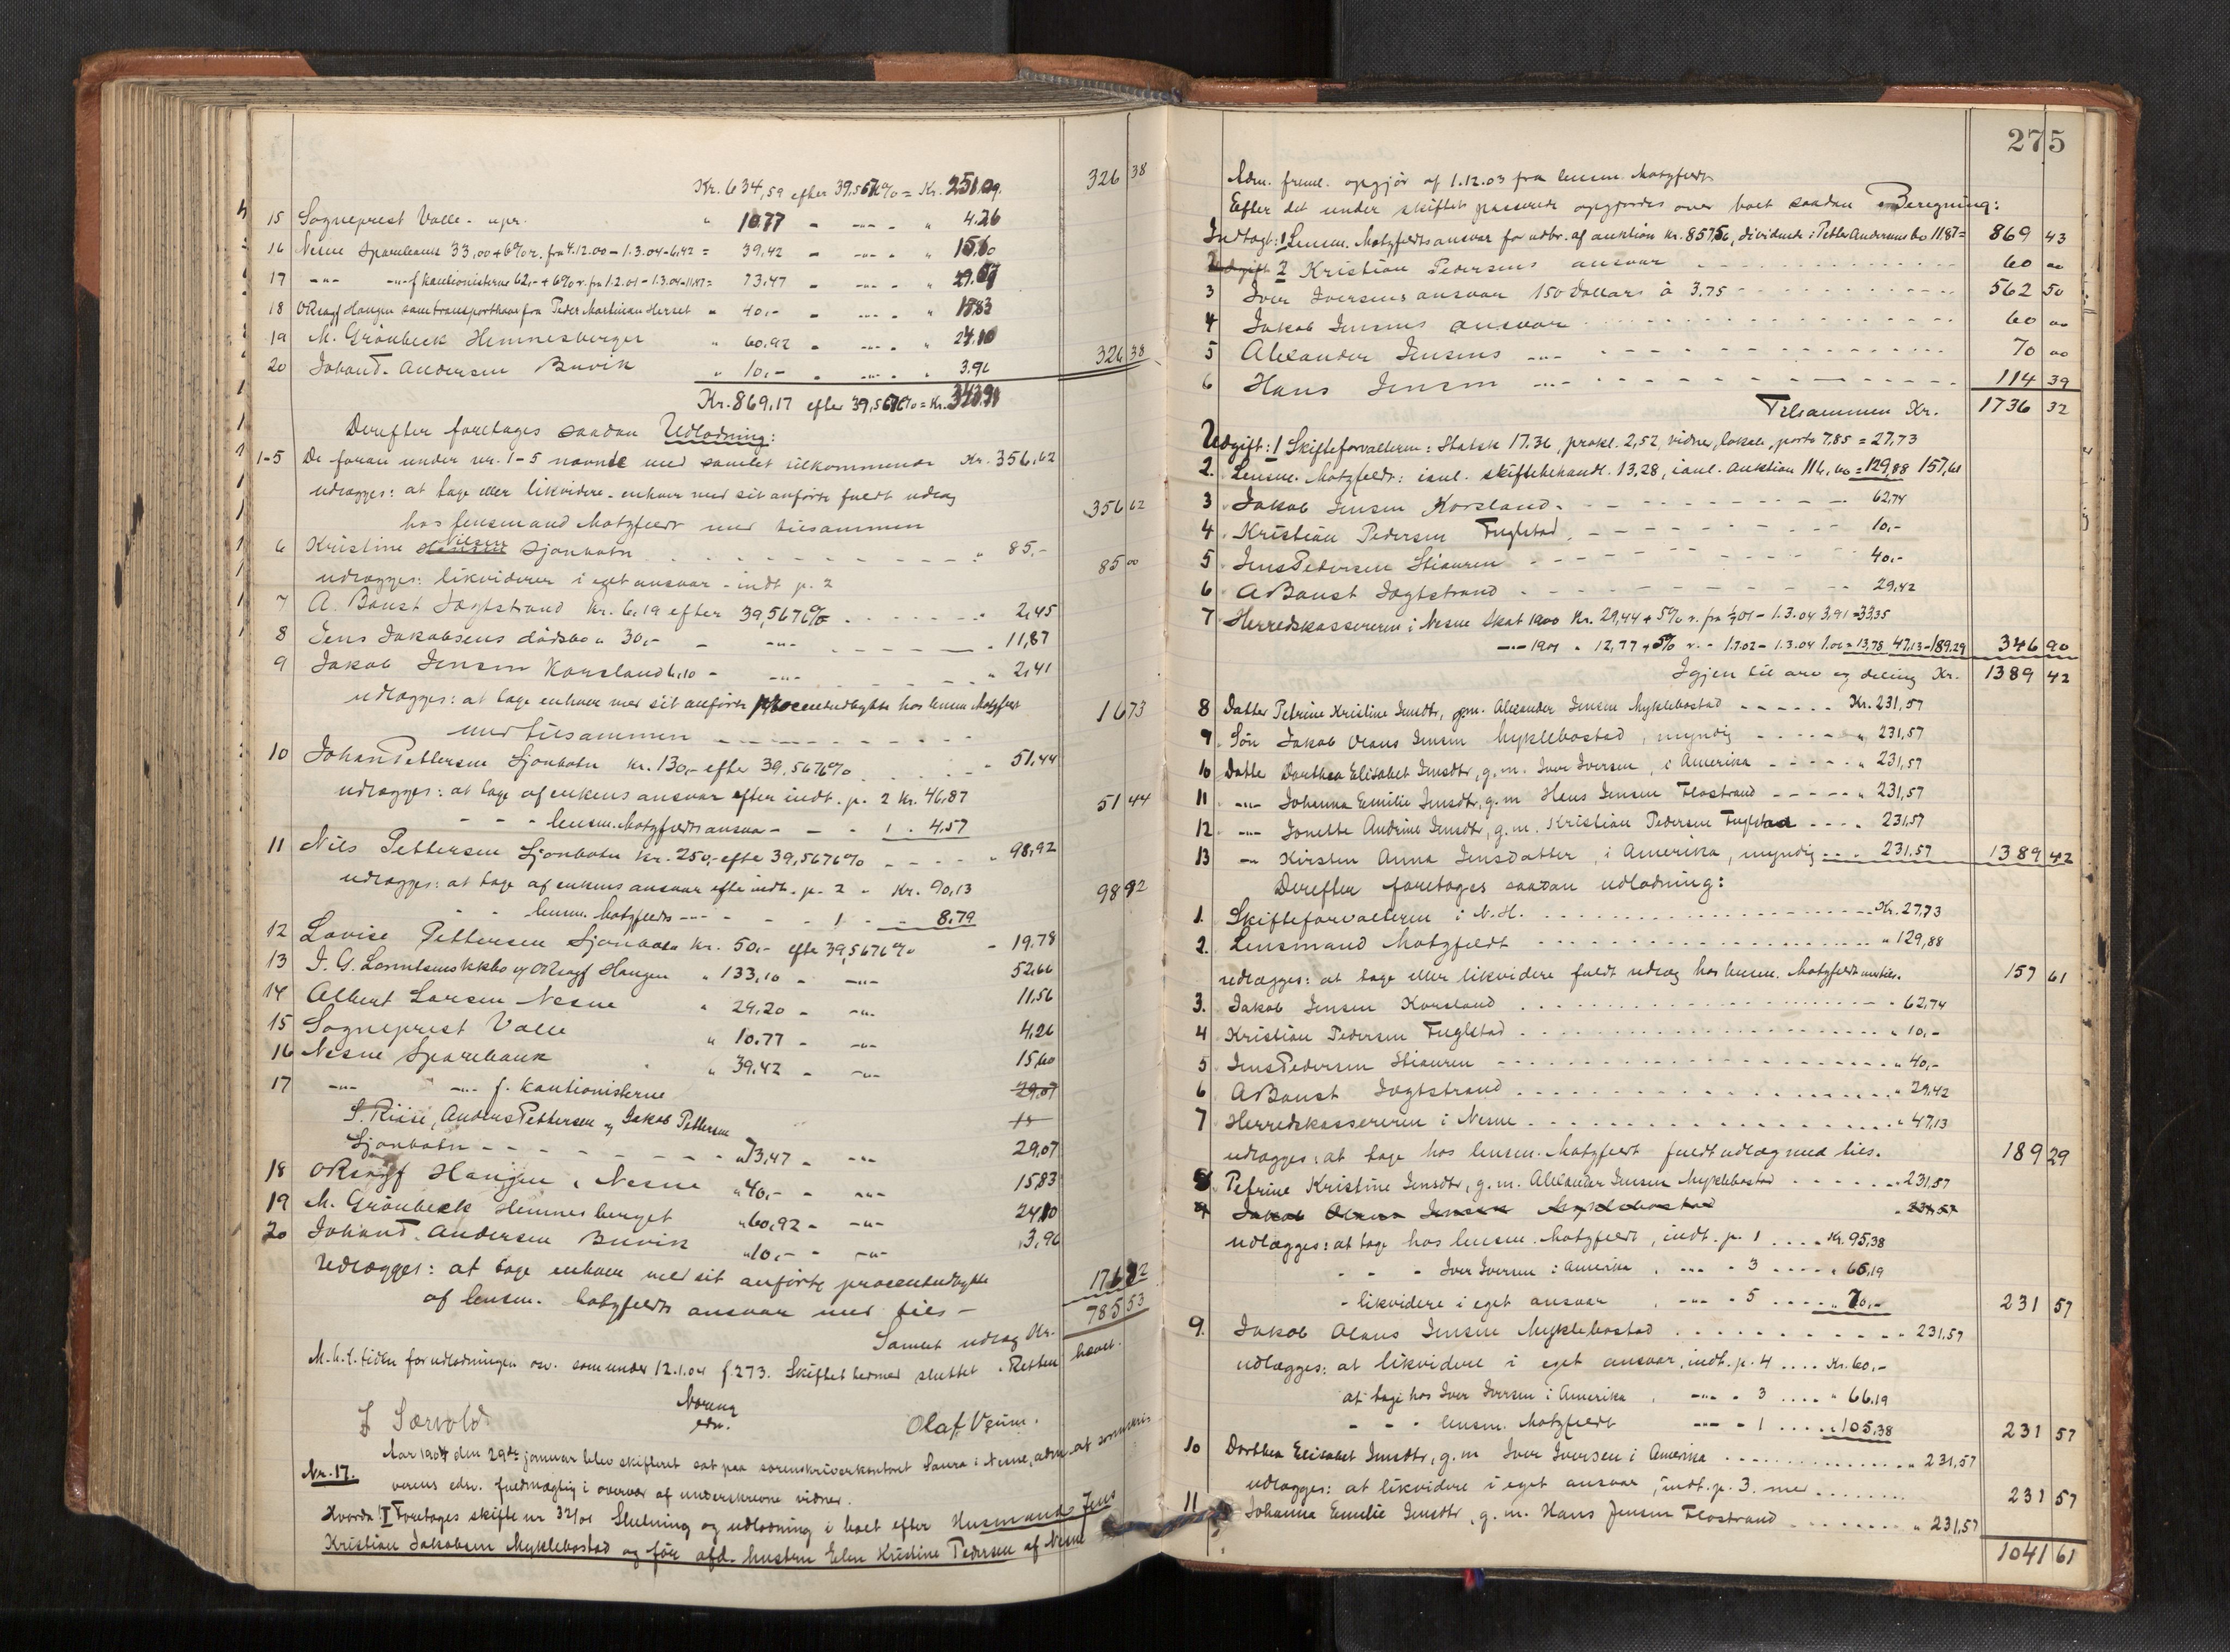 Kr. 634,59 efter 39,5676% = Kr. 251.09. 326 38
15 Sogneprest Valle - upr. " 10.77 - -"- - " 4.26
16 Nesne Sparebank 33,00 + 6% r. fra 4.12.00 - 1.3.04 - 6,42 = 39,42 - -"- - " 15,60
17 -"- -"- f. kautionisterne 62,- + 6% r. fra 1.2.01 - 1.3.04 - 11,47 = 73,47 - -"- - " 29.07
18 Haugen som transporthaver fra Peder Martinian Herset " 40,- - -"- - " 15.83
19 M. Grönbeck Hemnesberget " 60,92 - -"- - " 24,10
20 Johan T. Andersen Buvik " 10,- - -"- - " 3.96 326 38
Kr. 869,17 efter 39,5676% = Kr. 343.91
Derefter foretages saadan Udlodning:
1-5 De foran under nr. 1-5 nævnte med samlet tilkommende Kr. 356,62
udlægges: at tage eller likvidere enhver med sit anförte fuldt udlæg
hos lensmand Motzfeldt med tilsammen 356 62
6 Kristine Nilsen Sjonbotn " 85,-
udlægges: likviderer i eget ansvar - indt p. 2 85 00
7 A. Baust Jægtstrand Kr. 6,19 efter 39,5676% - 2,45
8 Jens Jakobsens dödsbo " 30,- - -"- - 11,87
9 Jakob Jensen Korsland 6,10 - -"- " 2,41
udlægges: at tage enhver med sit anförte procentudbytte hos lensm. Motzfeldt
med tilsammen 16 73
10 Johan Pettersen Sjonbotn Kr. 130,- efter 39,5676% - 51,44
udlægges: at tage af enkens ansvar efter indt. p. 2 Kr. 46,87
- - - lensm. Motzfeldts ansvar - - - 1 . 4,57 51 44
11 Nils Pettersen Sjonbotn Kr. 250,- efter 39,5676% - - - - " 98,92
udlægges: at tage af enkens ansvar efter indt. p. 2 - Kr. 90,13
- - lensm. Motzfeldts -"- - - - 1 - - 8.79 98 92
12 Lovise Pettersen Sjonbotn Kr. 50,- efter 39,5676% - 19.78
13 J. G. Haugen " 133,10 - -"- 52,66
14 Albert Larsen Nesne " 29,20 - -"- 11,56
15 Sogneprest Valle " 10.77 - -"- 4,26
16 Nesne Sparebank " 39.42 - -"- 15,60
17 -"- -"- f. kautionisterne 29,07
S. Riise, Anders Pettersen og Jakob Pettersen
Sjonbotn - - - - - - - - " 73,47 - -"- 29,07
18 Haugen, Nesne " 40,- - -"- 15,83
19 M. Grönbeck Hemnesberget " 60,92 - -"- 24,10
20 Johan T. Andersen Buvik " 10,- - -"- 3,96
udlægges: at tage enhver med sit anförte procentudbytte
af lensm. Motzfeldts ansvar med tils - 176 82
Samlet udlæg Kr. 785 53
M. h. t. tiden for udlodningen osv. som under 12.1.04 f. 273. Skiftet hermed sluttet. Retten hævet.
Noreng
edsv.
J Sørvold. Olaf Vgum.
Nr. 17. Aar 1904 den 29de januar blev skifteret sat paa sorenskriverkontoret Saura i Nesne, adm. at sorenskri
verens edsv. fuldmægtig i overvær af underskrevne vidner.
Hvorda: I Foretoges skifte nr 32/01 Slutning og udlodning i boet efter Husmand Jens
Kristian Jakobsen Myklebostad og före afd. hustru Elen Kristine Pedersen af Nesne
275
Adm. freml. opgjör af 1.12.03 fra lensm. Motzfeldt
Efter det under skiftet passerede opgjordes over boet saadan Beregning:
Indtægt: 1 Lensm. Motzfeldts ansvar for udbr. af auktion Kr. 857,56, dividende i Petter Andersens bo 11.87 = 869 43
2 Kristian Pedersens ansvar 60 00
3 Iver Iversens ansvar 150 Dollars à 3.75 562 50
4 Jakob Jensens ansvar 60 00
5 Alexander Jensens -"- 70 00
6 Hans Jensen -"- 114 39
Tilsammen Kr. 1736 32
Udgift: 1 Skifteforvalteren: Statsk 17.36, prokl. 2,52, vidner, lokale, porto 7.85 = 27,73
2. Lensm. Motzfeldt: isal. skiftebehandl. 13,28, isal. auktion 116,60 = 129,88 157,61
3 Jakob Jensen Korsland. 62,74
4 Kristian Pedersen Fuglstad 10,-
5 Jens Pedersen Stiauren 40,-
6 A Baust Jægtstrand 29,42
7 Herredskassereren i Nesne Skat 1900 Kr. 29,44 + 5% r. fra 1/7 01 - 1.3.04 3,91 = 33,35
-"- 1901 " 12,77 + 5% r. - 1.7.02 - 1.3.04 1.01 = 13,78 47,13 - 189.29 346 90
Igjen til arv og deling Kr. 1389 42
8 Datter Petrine Kristine Jensdtr, g.m. Alexander Jensen Myklebostad - - - - - - Kr. 231,57
9 Sön Jakob Olaus Jensen Myklebostad, myndig - - - - - " 231,57
10 Datter Dorthea Elisabet Jensdtr, g.m. Iver Iversen, i Amerika - - - - - " 231,57
11 -"- Johanna Emilie Jensdtr, g.m. Hans Jensen Flostrand - - - - - " 231,57
12 -"- Jonette Andrine Jensdtr, g.m. Kristian Pedersen Fuglstad - - - - 231,57
13 -"- Kirsten Anna Jensdatter, i Amerika, myndig - - - 231,57 1389 42
Derefter foretages saadan udlodning:
1. Skifteforvalteren i N. H. Kr. 27,73
2. Lensmand Motzfeldt " 129,88
udlægges: at tage eller likvidere fuldt udlæg hos lensm. Motzfeldt med tils. 157 61
3. Jakob Jensen Korsland " 62,74
4 Kristian Pedersen Fuglstad " 10,-
5 Jens Pedersen Stiauren " 40,-
6 A Baust Jægtstrand " 29,42
7 Herredskassereren i Nesne " 47,13
udlægges: at tage hos lensm. Motzfeldt fuldt udlæg med tils. 189 29
8 Petrine Kristine Jensdtr, g.m. Alexander Jensen Myklebostad 231,57
9 Jakob Olaus Jensen Myklebostad " 231,57
udlægges: at tage hos lensm. Motzfeldt, indt. p. 1 . . . . Kr. 95,38
- - - Iver Iversen i Amerika, -"- - 3 . . . . " 66,19
- likvidere i eget ansvar, -"- - 5 . . . . " 70,- 231 57
9. Jakob Olaus Jensen Myklebostad 231,57
udlægges: at likvidere i eget ansvar, indt. p. 4 . . . . Kr. 60,-
at tage hos Iver Iversen i Amerika, -"- - 3 . . . . " 66,19
- - - lensm. Motzfeldt -"- - 1 . . . . " 105,38 231 57
10 Dorthea Elisabet Jensdtr, g.m. Iver Iversen i Amerika " 231,57
udlægges: at likvidere i eget ansvar, indt. p. 3. med 231 57
11 Johanna Emilie Jensdtr, g.m. Hans Jensen Flostrand " 231,57
1041 61